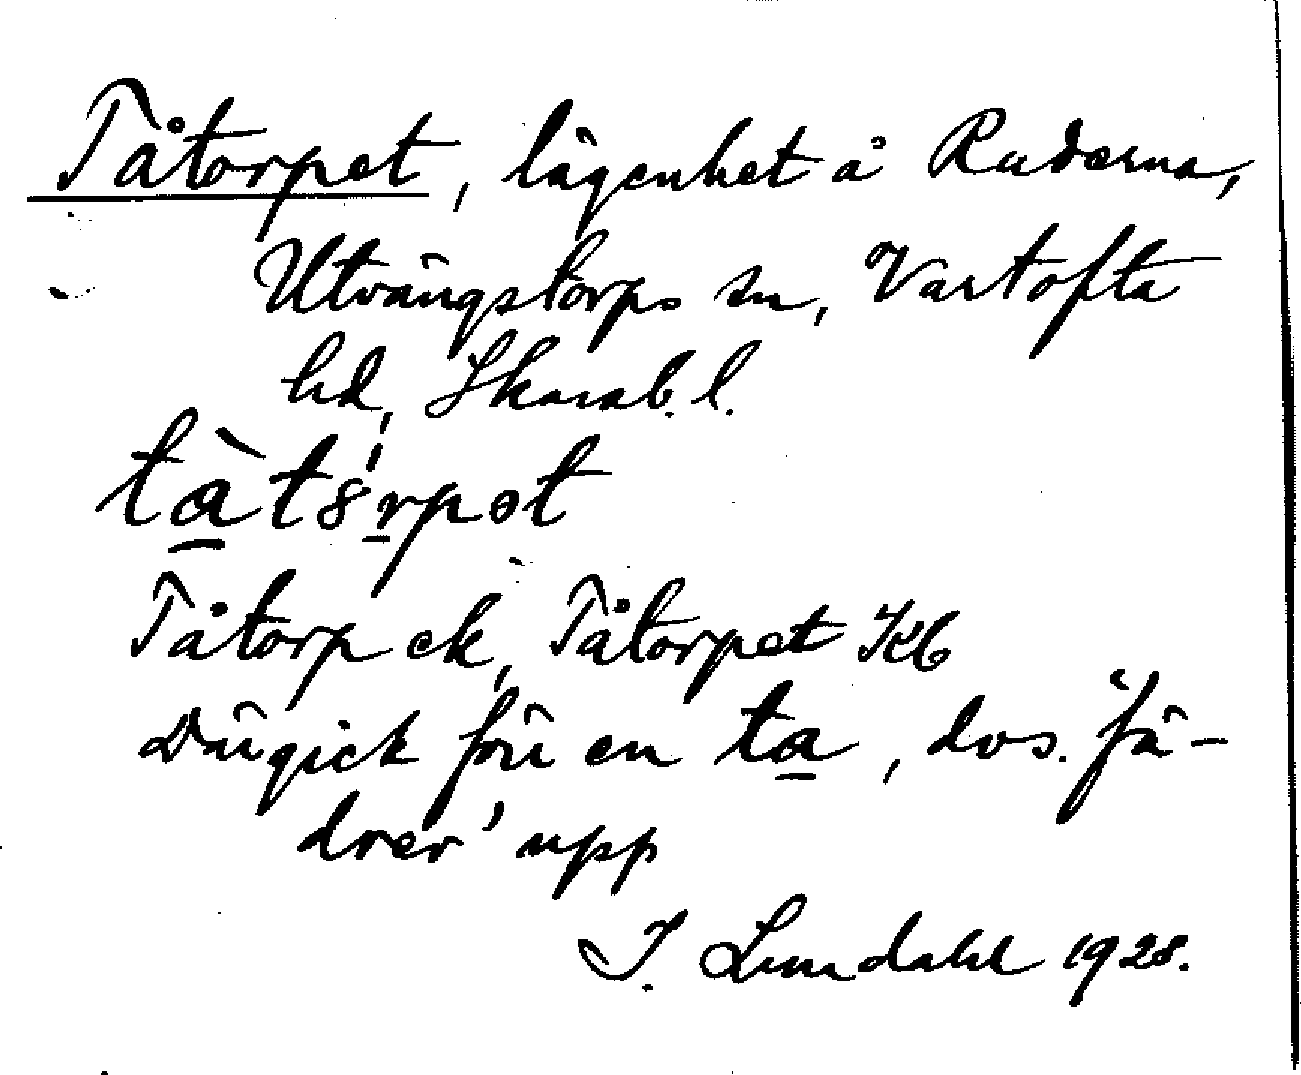 Tåtorpet, lägenhet å Ruderna,
Utvängstorps sn, Vartofta
hd, Skarab. l.
tàtórpət
Tåtorp ek, Tåtorpet Kb
Därgick förr en ta, dvs. 'fä-
drev' upp
I. Lundahl 1928.